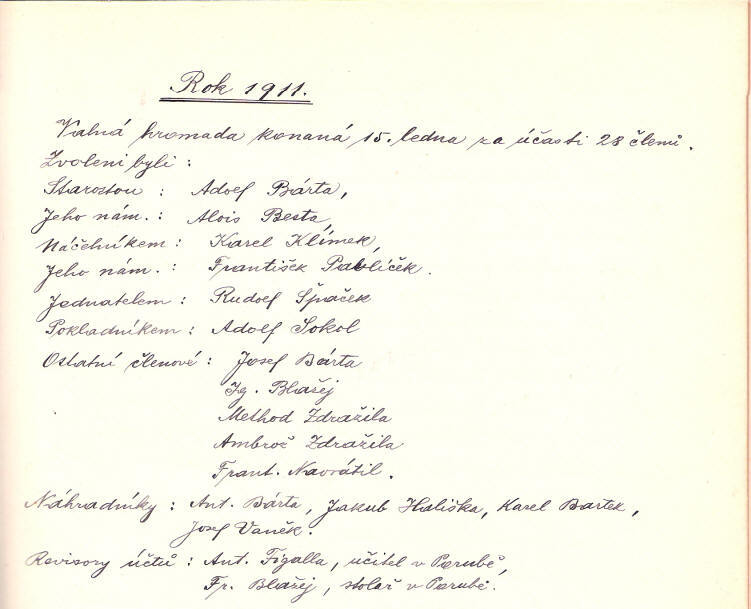 Rok 1911.
Valná hromada konaná 15. ledna za účasti 28 členů.
Zvoleni byli :
Starostou : Adolf Bárta,
Jeho nám. : Alois Besta,
Náčelníkem : Karel Klímek,
Jeho nám. : František Pavlíček.
Jednatelem : Rudolf Špaček
Pokladníkem : Adolf Sokol
Ostatní členové : Josef Bárta
Ig. Blažej
Method Zdražila
Ambrož Zdražila
Frant. Navrátil.
Náhradníky : Ant. Bárta, Jakub Hališka, Karel Bartek,
Josef Vaněk.
Revisory účtů : Ant. Figalla, učitel v Porubě,
Fr. Blažej, stolař v Porubě.